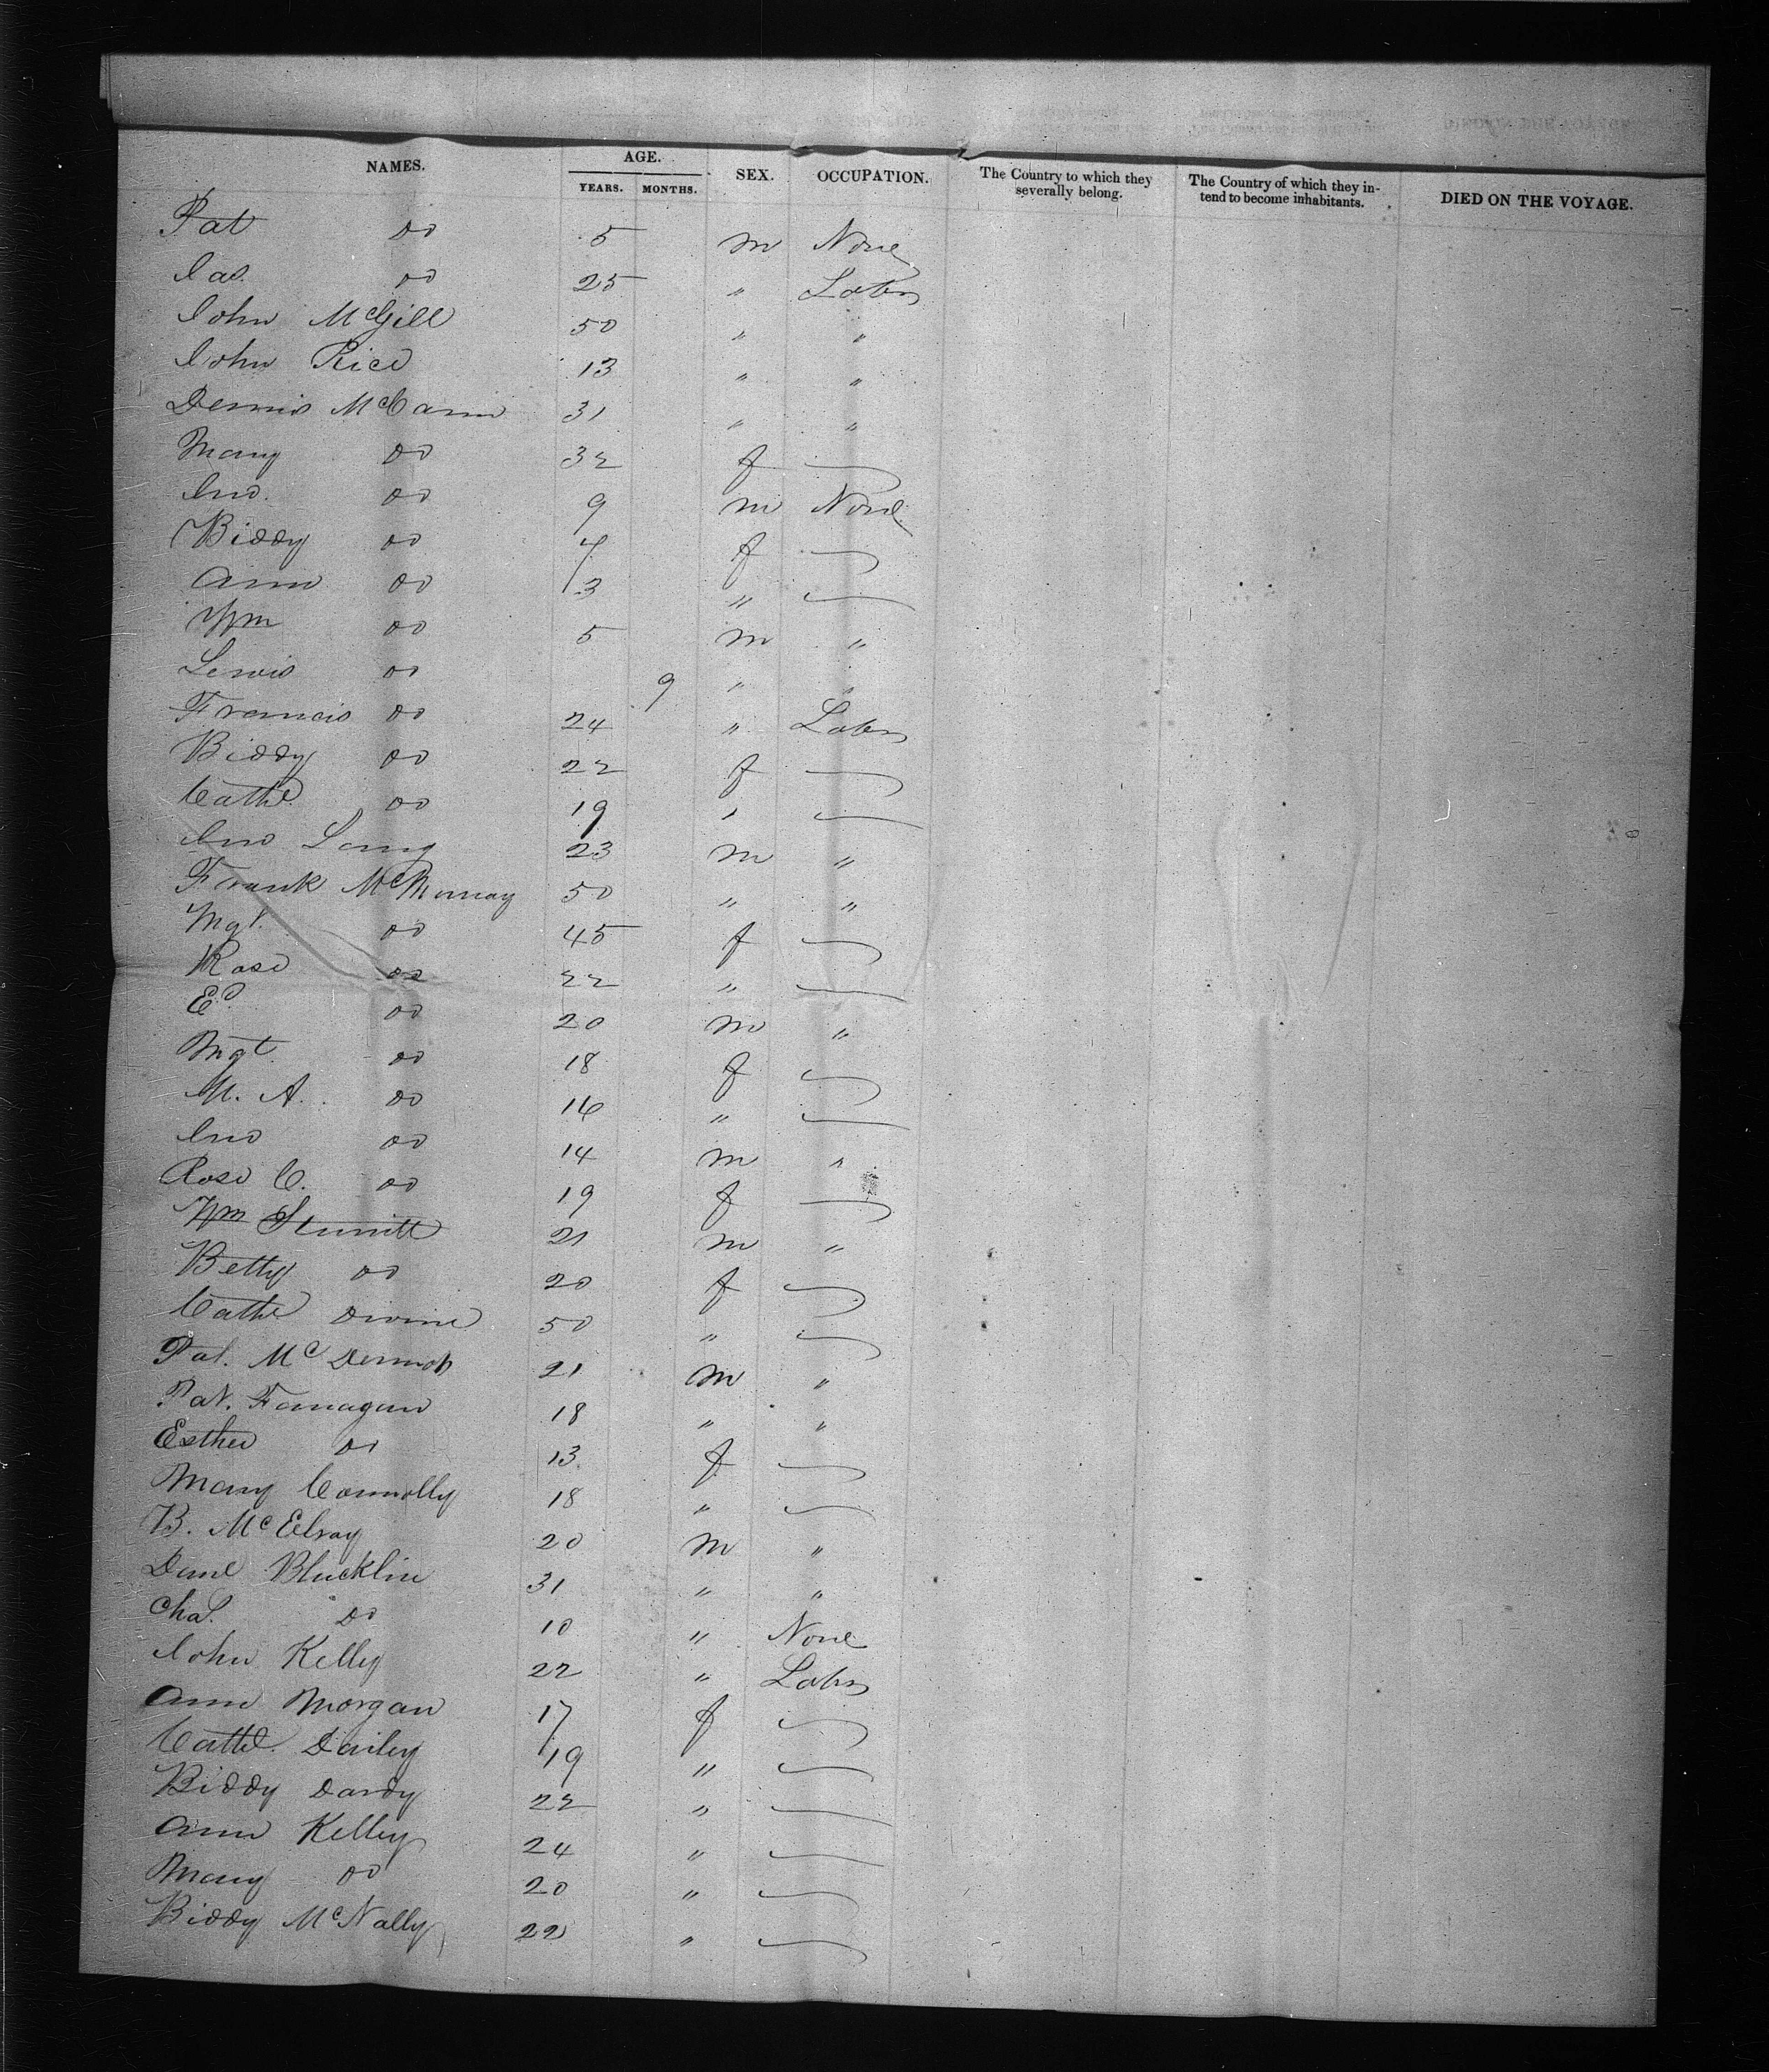 NAMES. AGE. YEARS. MONTHS. SEX. OCCUPATION. The Country to which they severally belong. The Country of which they intend to become inhabitants. DIED ON THE VOYAGE.
Pat do 5 m None
Jas. do 25 " Labr
John McGill 50 " "
John Rice 13 " "
Dennis McCann 31 " "
Mary do 32 f —
Jno. do 9 m None
Biddy do 7 f —
Ann do 3 " —
Wm do 5 m "
Lewis do 9 " "
Francis do 24 " Labr
Biddy do 22 f —
Cathe do 19 " —
Jno Long 23 m "
Frank McMurray 50 " "
Mgt. do 45 f —
Rose do 22 " —
Ed. do 20 m "
Mgt. do 18 f —
M. A. do 16 " —
Jno do 14 m "
Rose C. do 19 f —
Wm 21 m "
Betty do 20 f —
Cathe Divine 50 " —
Pat. McDermott 21 m "
Pat. Fanagan 18 " "
Esther do 13 f —
Mary Connolly 18 " —
B. McElroy 20 m "
Danl 31 " "
Chas. do 10 " None
John Kelly 22 " Labr
Ann Morgan 17 f —
Cathe. Dailey 19 " —
Biddy Dardy 22 " —
Ann Kelley 24 " —
Mary do 20 " —
Biddy McNally 22 " —